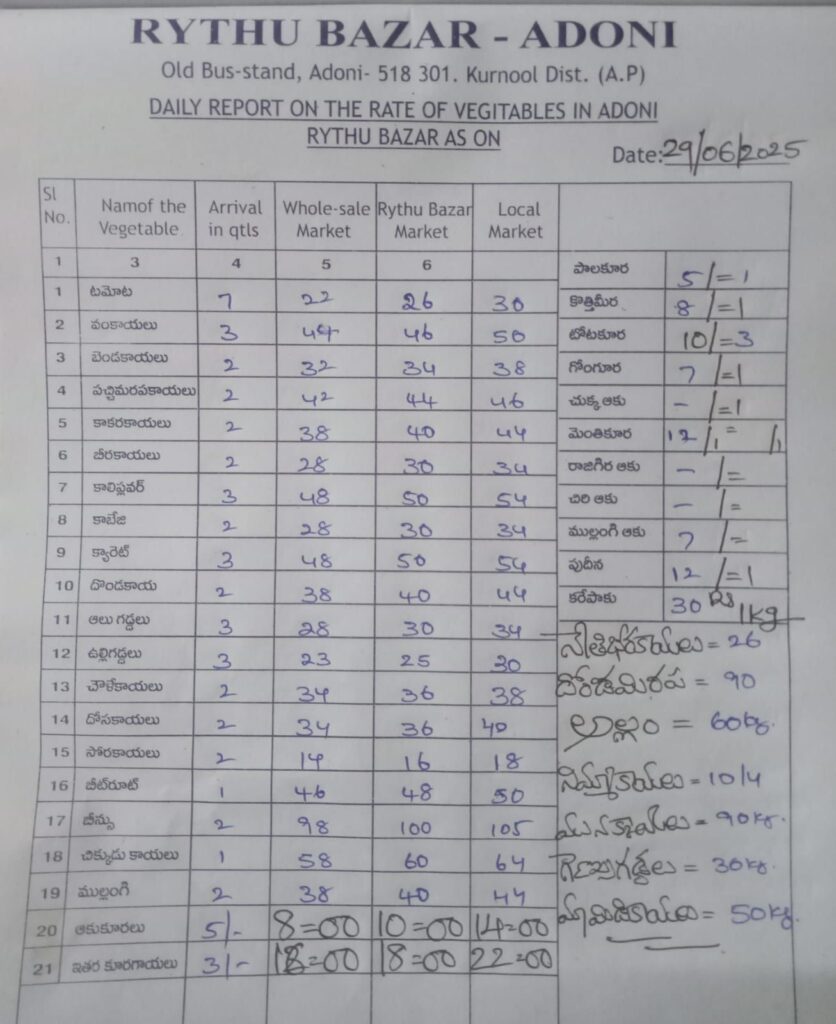 RYTHU BAZAR - ADONI
Old Bus-stand, Adoni- 518 301. Kurnool Dist. (A.P)
DAILY REPORT ON THE RATE OF VEGITABLES IN ADONI
RYTHU BAZAR AS ON
Date: 29/06/2025
Sl No. Namof the Vegetable Arrival in qtls Whole-sale Market Rythu Bazar Market Local Market
1 3 4 5 6
1 టమోట 7 22 26 30
2 వంకాయలు 3 44 46 50
3 బెండకాయలు 2 32 34 38
4 పచ్చిమిరపకాయలు 2 42 44 46
5 కాకరకాయలు 2 38 40 44
6 బీరకాయలు 2 28 30 34
7 కాలిఫ్లవర్ 3 48 50 54
8 కాబేజి 2 28 30 34
9 క్యారెట్ 3 48 50 54
10 దొండకాయ 2 38 40 44
11 ఆలు గడ్డలు 3 28 30 34
12 ఉల్లిగడ్డలు 3 23 25 30
13 చౌళేకాయలు 2 34 36 38
14 దోసకాయలు 2 34 36 40
15 సోరకాయలు 2 14 16 18
16 బీట్‌రూట్ 1 46 48 50
17 బీన్సు 2 98 100 105
18 చిక్కుడు కాయలు 1 58 60 64
19 ముల్లంగి 2 38 40 44
20 ఆకుకూరలు 5/- 8=00 10=00 14=00
21 ఇతర కూరగాయలు 3/- 18=00 22=00
పాలకూర 5/=1
కొత్తిమీర 8/=1
టోటకూర 10/=3
గోంగూర 7/=1
చుక్క ఆకు -/=1
మెంతికూర 12/1 = /1
రాజగిర ఆకు -/=
చిరి ఆకు -/=
ముల్లంగి ఆకు 7/=
పుదీన 12/=1
కరేపాకు 30 Rs 1kg
నేతిబీరకాయలు = 26
= 90
అల్లం = 60kg.
నిమ్మకాయలు = 10/4
మునకాయలు = 90kg.
గెణుసుగడ్డలు = 30kg.
మామిడికాయలు = 50kg.